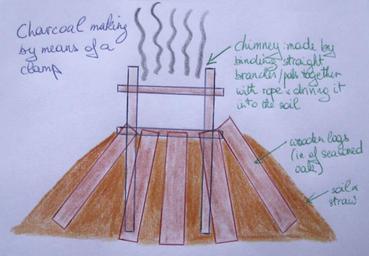 Charcoal making
by means of a
clamp
chimney: made by
binding straight
branches/pals together
with rope & driving it
into the soil
wooden logs
(ie of seasoned
oak)
soil &
straw